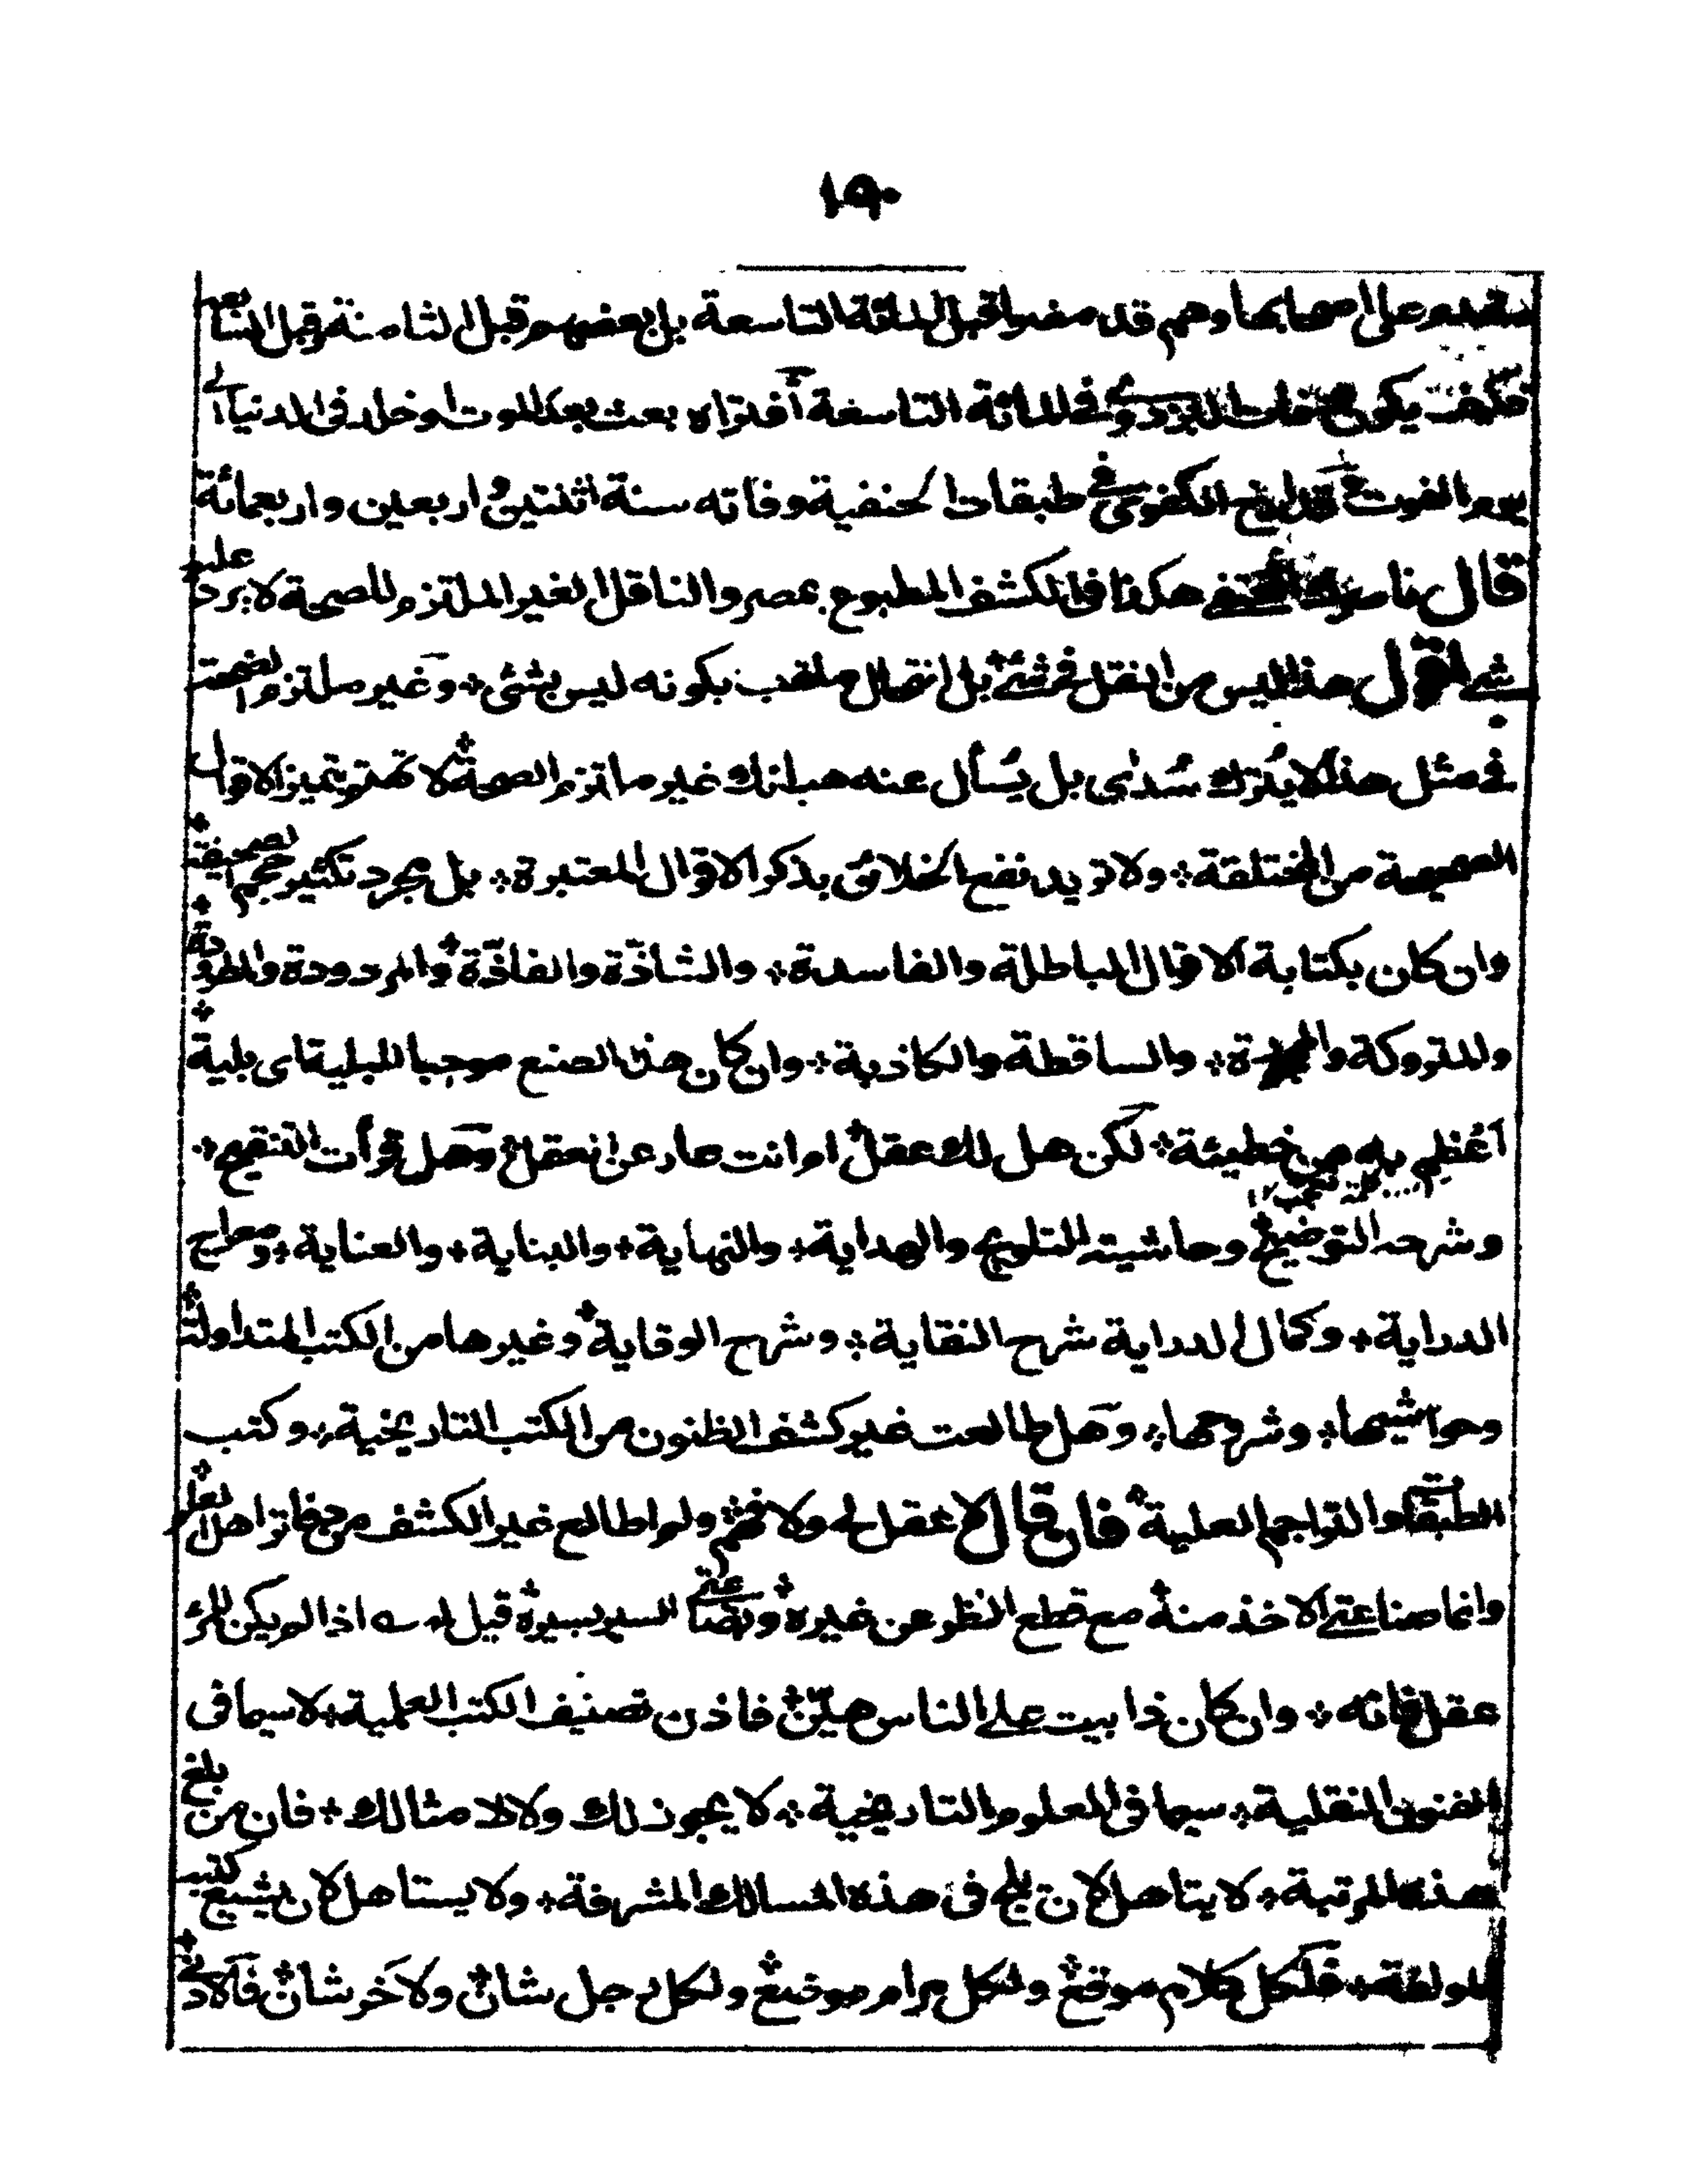 ١٩٠
متقدم على اصحابها وهم قد مضوا قبل المائة التاسعة بل بعضهم قبل الثامنة وقبل السابعة
فكيف يكون وفات البزدوي في المائة التاسعة أفتراه بعث بعد الموت او خلد في الدنيا الى
يوم الفوت وقد ارخ الكفوى في طبقات الحنفية وفاته سنة اثنتين و اربعين واربعمائة
قال ناصرك المختفى هكذا فى الكشف المطبوع بمصر والناقل الغير الملتزم للصحة لا يرد عليه
شئ اقول هذا ليس من النقل فى شئ بل انتحال ملقب بكونه ليس بشئ وغير ملتزم الصحة
فى مثل هذا لا يُترك سُدى بل يُسأل عنه هب انك غير ملتزم الصحة لا تهتم بتميز الاقوال
الصحيحة من المختلقة ولا تريد نفع الخلائق بذكر الاقوال المعتبرة بل مجرد تكثير حجم الصحيفة
وان كان بكتابة الاقوال الباطلة والفاسدة والشاذّة والفاذّة والمردودة والمطرودة
والمتروكة و والساقطة والكاذبة وان كان هذا الصنع موجبا للبلية اى بلية
أعْظِم به من خطيئة لكن هل لك عقل ام انت عار عن العقل وهل قرأت التنقيح
كلمة تعجب ١٢
وشرحه التوضيح وحاشيته التلويح والهداية والنهاية والبناية والعناية ومعراج
الدراية وكمال الدراية شرح النقاية وشرح الوقاية وغيرها من الكتب المتداولة
وحواشيها وشروحها وهل طالعت غير كشف الظنون من الكتب التاريخية وكتب
الطبقات والتراجم العلية فان قال لا عقل لى ولا فهم ولم اطالع غير الكشف من دفاتر اهل العلم
وانما صناعتى الاخذ منه مع قطع النظر عن غيره وبضاعتى السير بسيره قيل له ؎ اذا لم يكن للمرء
عقل فانه وان كان ذا بيت على الناس هيّن فاذن تصنيف الكتب العلمية لا سيما فى
الفنون النقلية سيما فى العلوم التاريخية لا يجوز لك ولا لامثالك فان من بلغ
هذه المرتبة لا يتاهل لان يلج فى هذه المسالك المشرفة ولا يستاهل لان يشيع كتبه
المولفة فلكل كلام موقع ولكل مرام موضع ولكل رجل شان ولآخر شان فالادنى